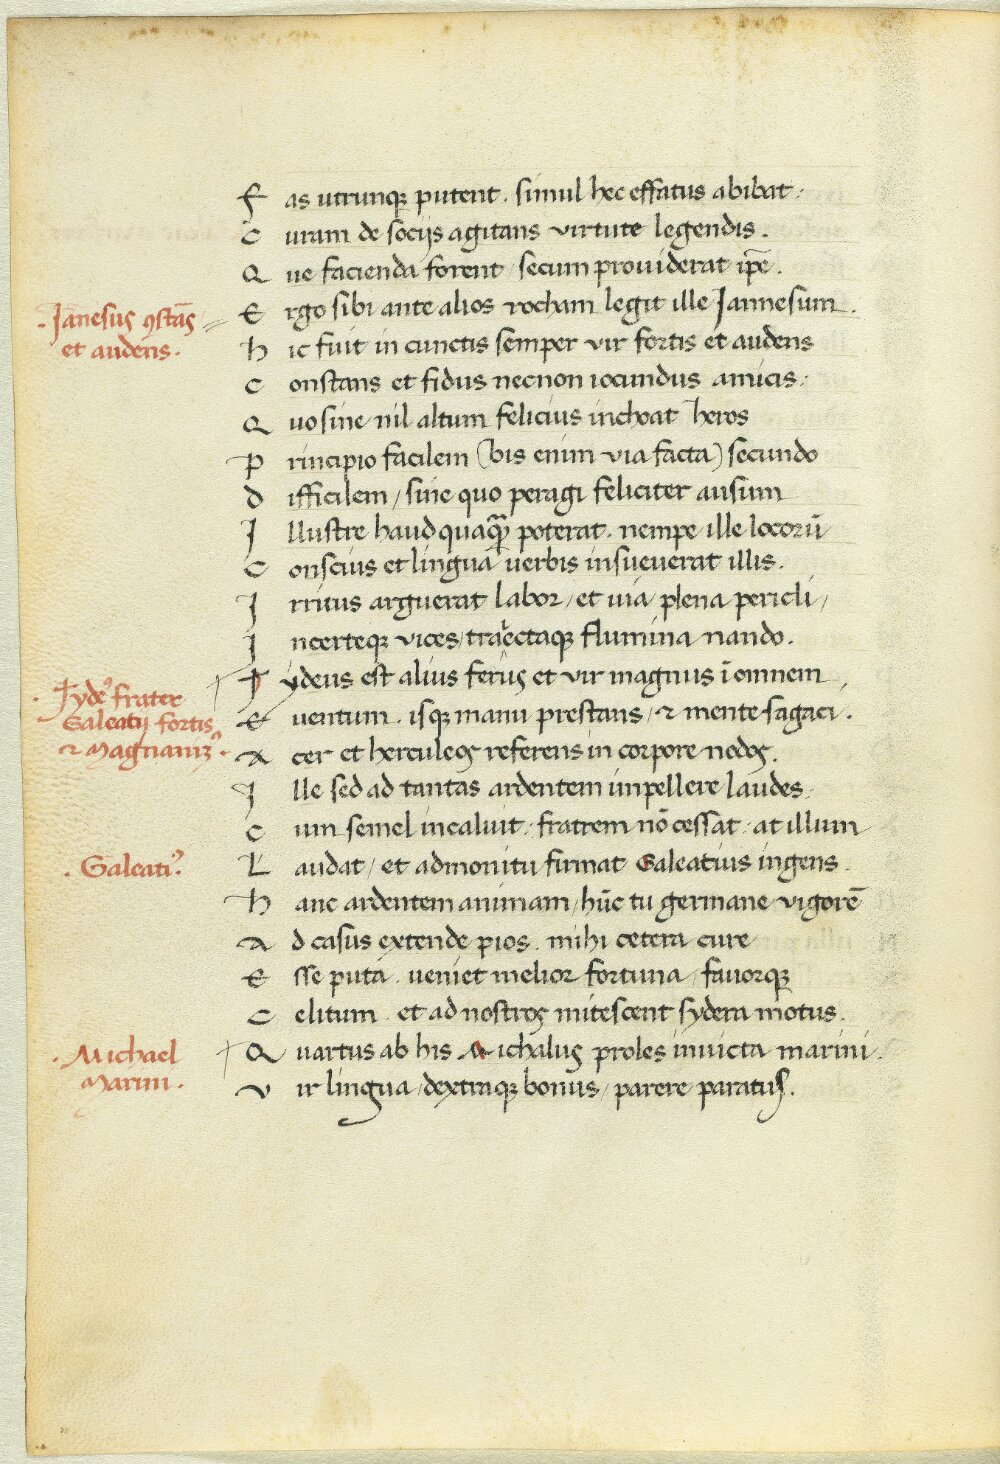 Fas utrunqꝫ putent . simul hec effatus abibat .
Curam de socijs agitans virtute legendis .
Que facienda forent / secum prouiderat ip̄e .
.Janesus ꝯstās
et audens .
Ergo sibi ante alios rocham legit ille Jannesum .
Hic fuit in cunctis semper vir fortis et audens
Constans et fidus necnon iocundus amicis .
Quo sine nil altum felicius inchoat heros
Principio facilem (bis enim via facta) secundo
Difficilem / sine quo peragi feliciter ausum
Illustre haud quaqꝫ poterat . nempe ille locorū
Conscius et linguā verbis insueuerat illis .
Irritus arguerat labor / et uia plena pericli /
Incerteqꝫ vices / traiectaqꝫ flumina nando .
.Tydeꝰ frater
Galeatij fortis
⁊ Magnanimꝰ .
Tydeus est alius ferus et vir magnus ī omnem
Euentum . isqꝫ manu prestans / ⁊ mente sagaci .
Acer et herculeos referens in corpore nodos .
Ille sed ad tantas ardentem impellere laudes
Cum semel incaluit . fratrem nō cessat . at illum
. Galeatiꝰ .
Laudat / et admonitu firmat Galeatius ingens .
Hanc ardentem animam / hūc tu germane vigorē
Ad casus extende pios . mihi cetera cure
Esse puta . ueniet melior fortuna / fauorqꝫ
Celitum . et ad nostros mitescent sydera motus .
. Michael
Marini .
Quartus ab his Michalus proles inuicta marini .
Vir lingua / dextraqꝫ bonus / parere paratus .